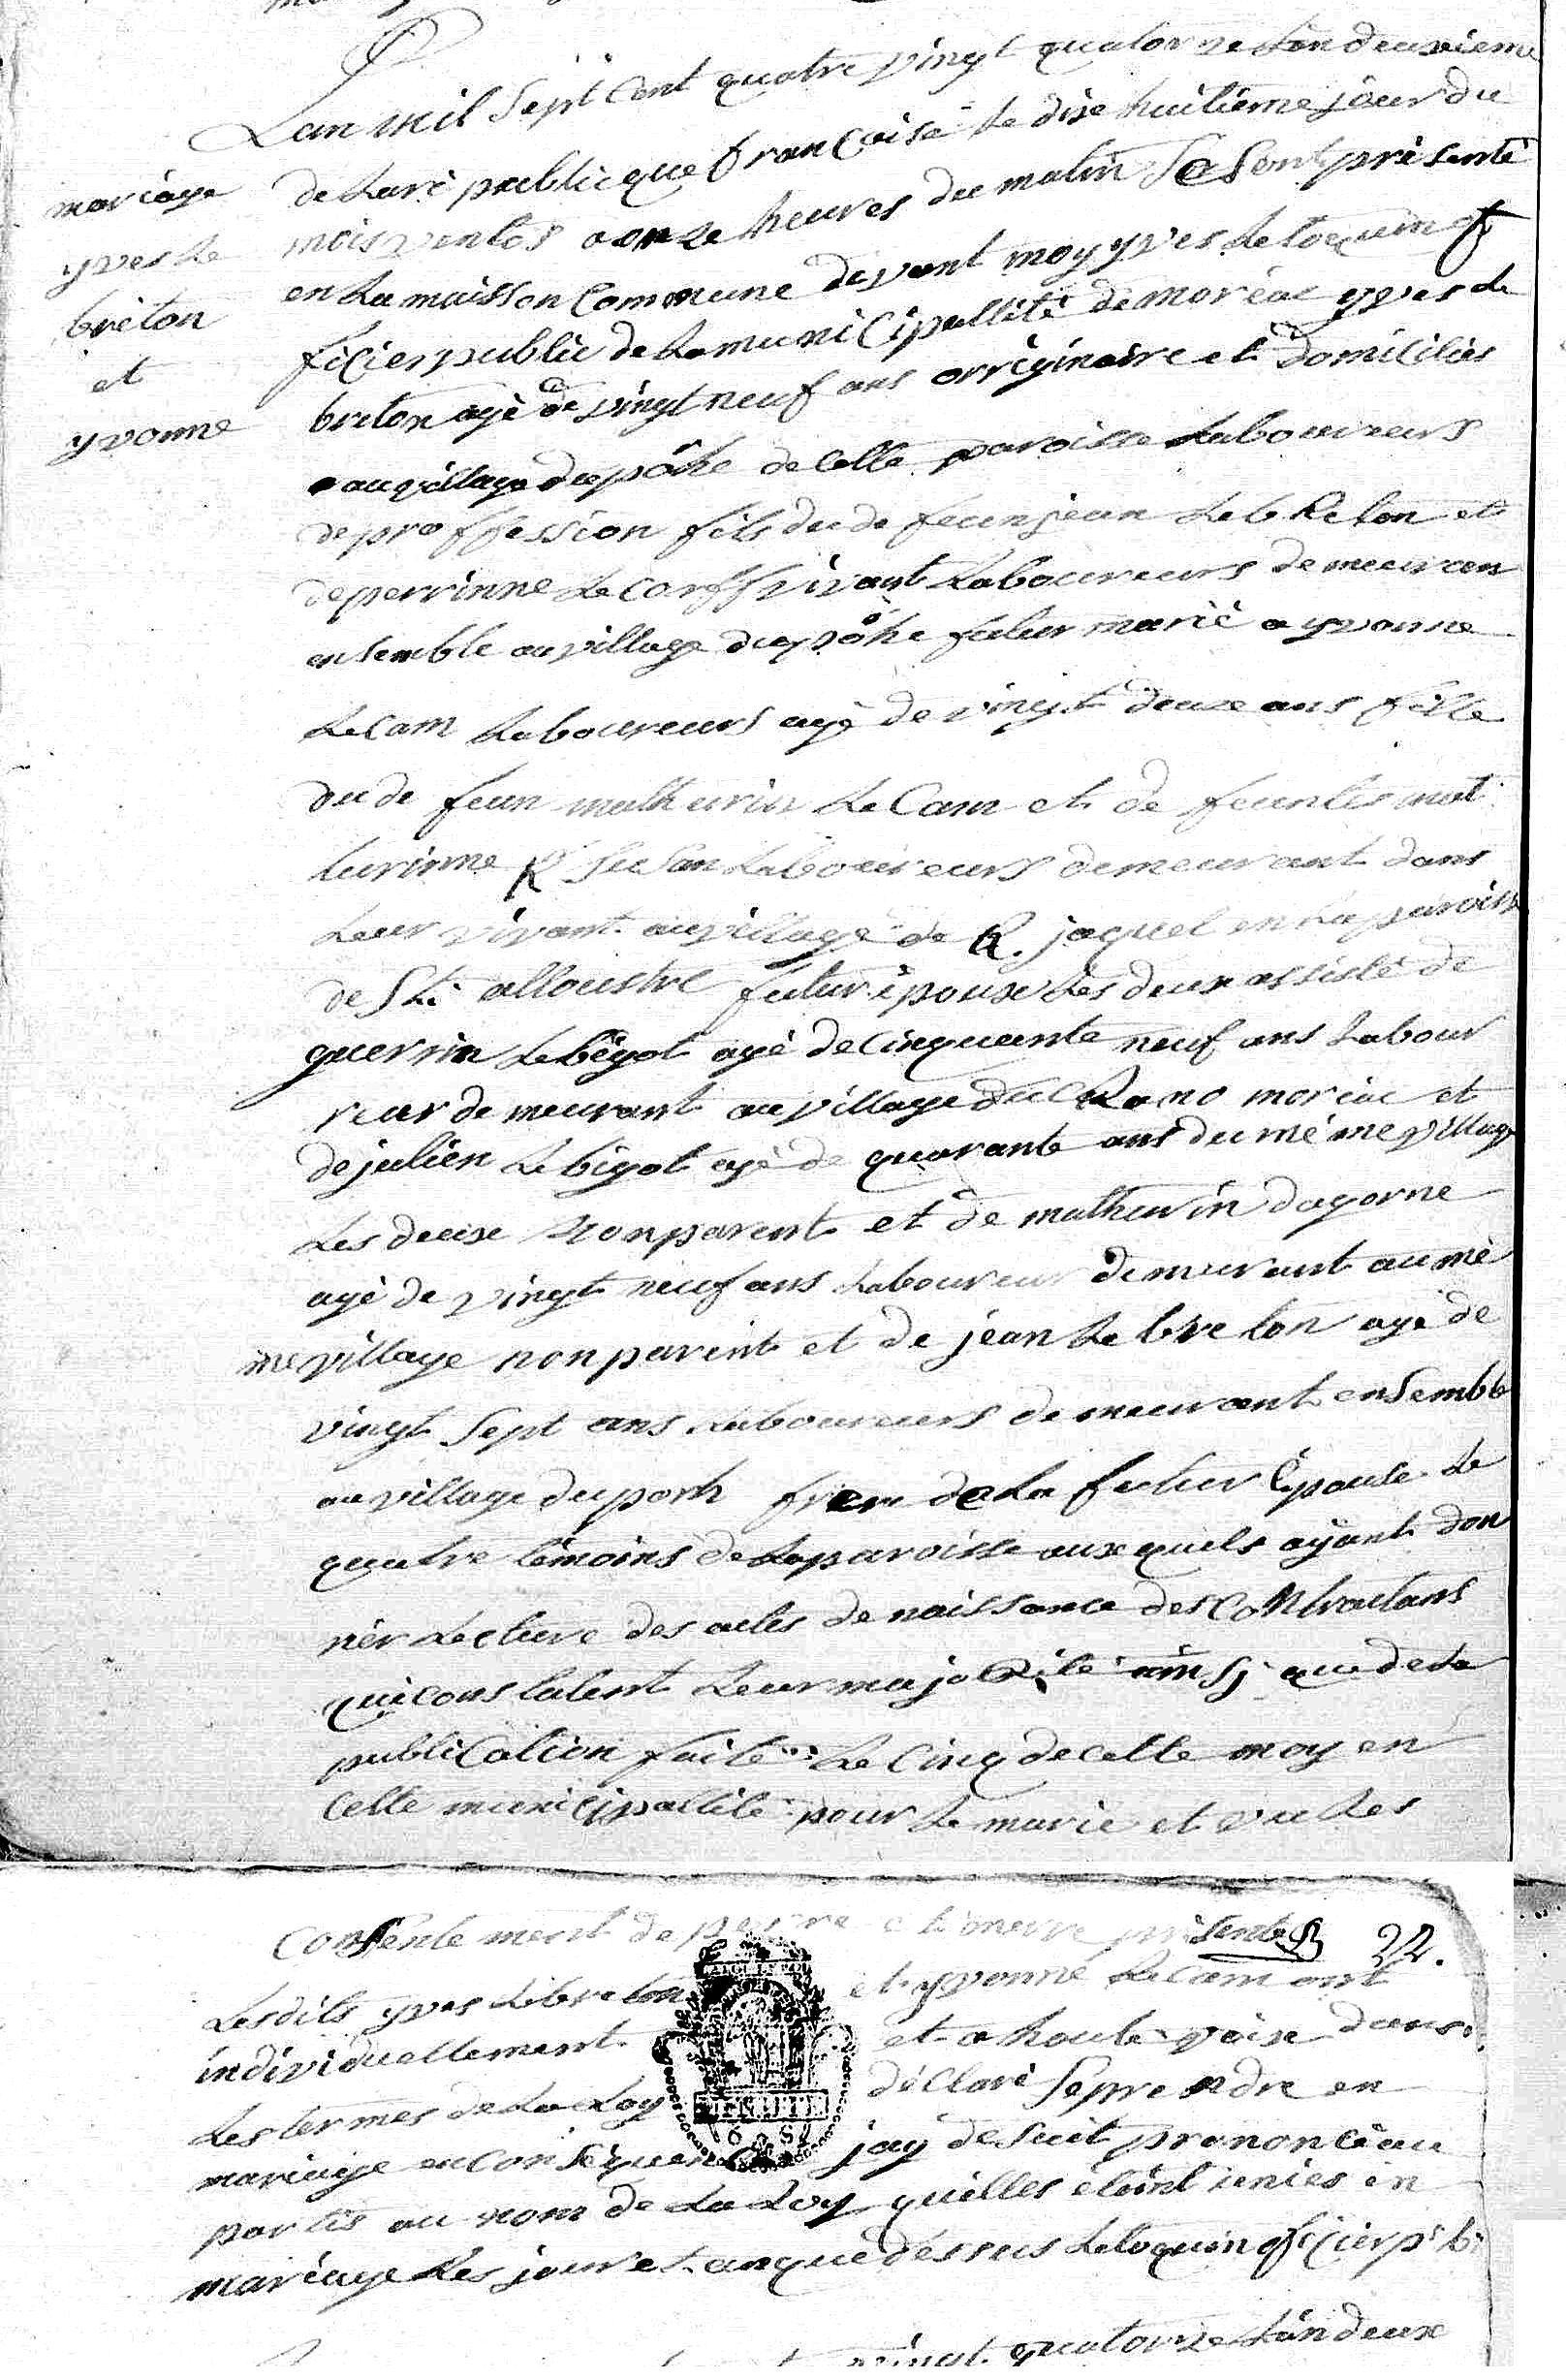 Lan mil sept cent quatre vingt quatorze L'an deuxieme
de La republicque francoise Le dix huitieme jour du
mois ventos a onze heures du matin Se Sont présenté
en La maisson Commune devant moy yves Le toquin of
ficier public de La municipallité de moréac yves Le
breton agé de vingt neuf ans orriginaire et domiciliés
au village du pôhe de cette paroisse Laboureurs
de proffession fils du de feu jean Le bReton et
de perrinne Le corff vivant Laboureurs demeuran
ensemble au village du pôhe futur marié a yvonne
Le Cam Laboureurs agé de vingt deux ans fille
du de feun mathurin Le Cam et de feu mat
turinne K Susan Laboureurs demeurant dans
Leur vivant au village de K. jaquel en La paroisse
de St allouestre futur époux Les deux assisté de
guerrin Le bigot agé de cinquante neuf ans Labour
reur demeurant au village du moréac et
de julien Le bigot agé de quarante ans du méme village
Les deux non parent et de mathurin dagorne
agé de vingt neuf ans Laboureur demeurant au mé
me village non parent et de jéan Le breton agé de
vingt sept ans Laboureurs demeurant ensemble
au village du porh frere de La futur épouse Le
quatre témoins de La paroisse aux quels ayant don
nér Lecture des actes de naissance des contractans
qui constatent Leur majorité ainsj que de La
publication faite Le cinq de cette moy en
cette municipallité pour Le marié et vu Les
mariage
yves Le
breton
et
yvonne
consentement de perre et merre présente 22.
Lesdits yves Le breton et yvonne Le cam ont
individuellement et a haute voix dans
Les termes de La Loy déclaré se prendre en
mariage en conséquence jay de suit prononcé au
partis au nom de La Loy quilles étoint unies en
mariage Les jour et an que déssus Le toquin officier
vingt quatorze L'an deux